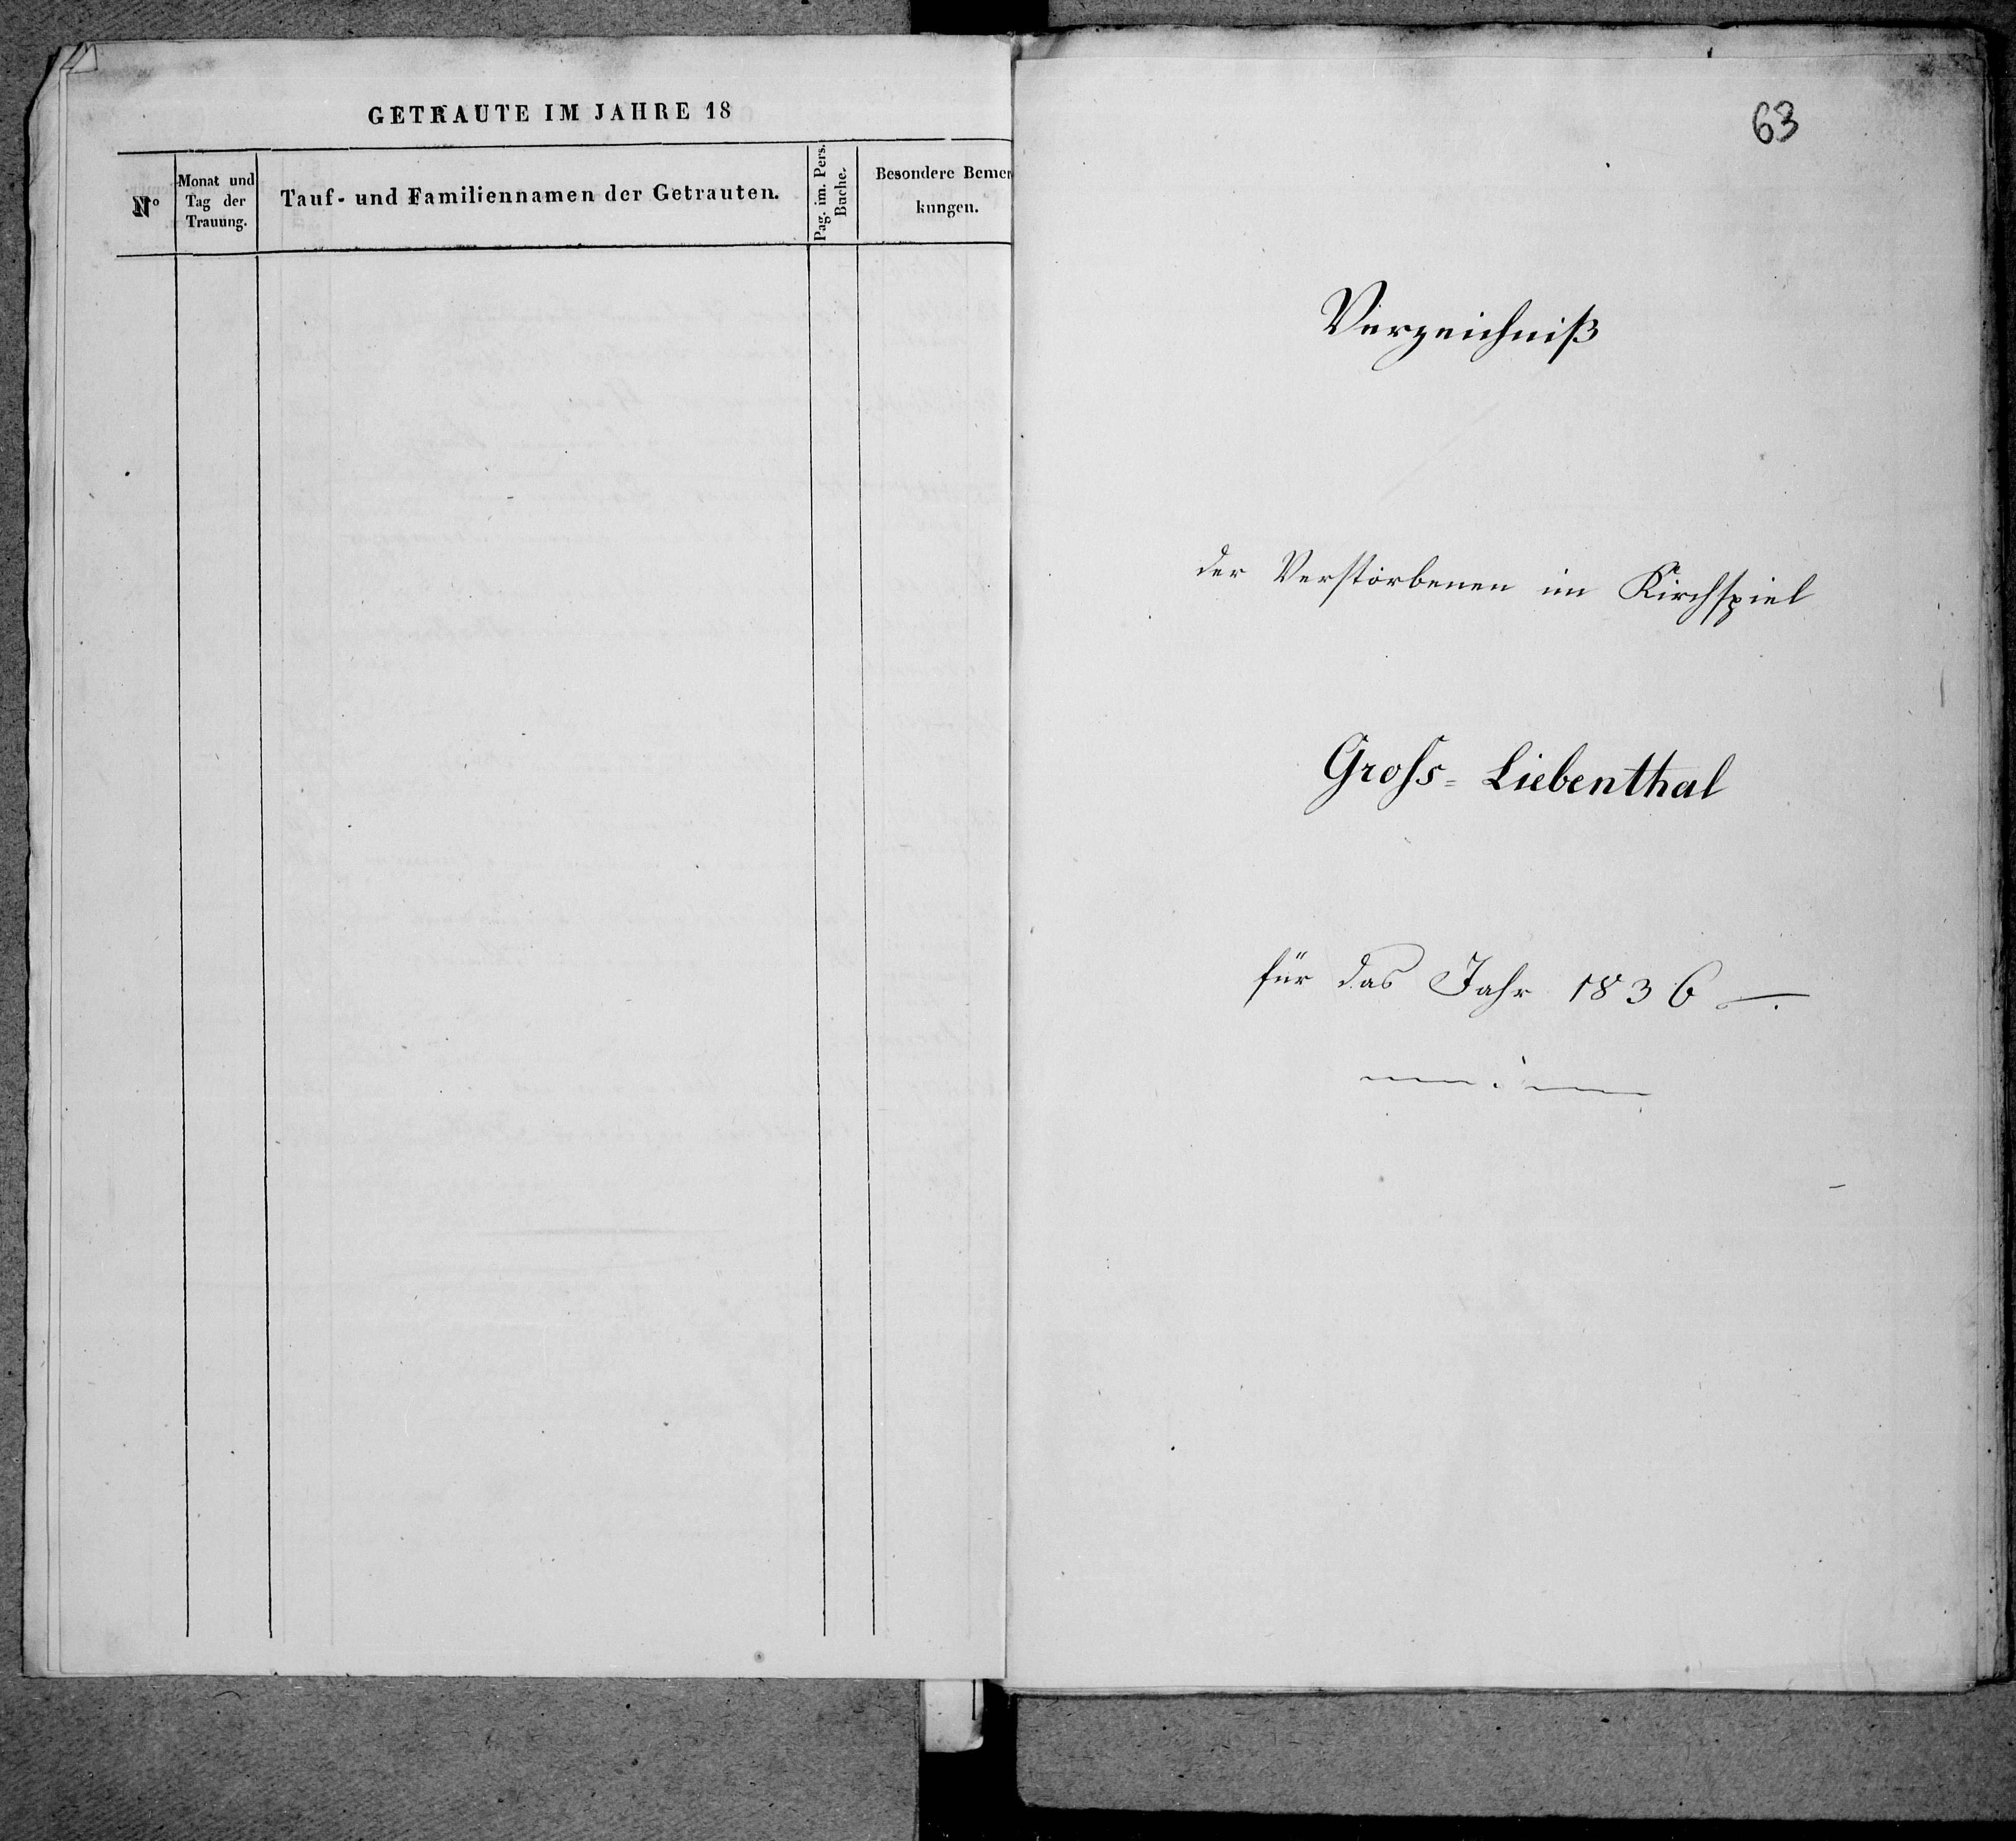 GETRAUTE IM JAHRE 18
N°
Monat und
Tag der
Trauung.
Tauf- und Familiennamen der Getrauten.
Pag. im. Pers.
Buche.
Besondere Bemer
kungen.
63
Verzeichniß
der Verstorbenen im Kirchspiel
Groſs= Liebenthal
für das Jahr 1836